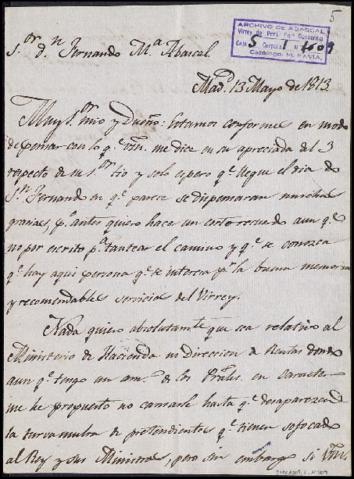 5
ARCHIVO DE ABASCAL
Virrey del Perú
S.or d.n Fernando M.a Abascal
Mad.d 13 Mayo de 1813.
Muy S.or mio y Dueño: Estamos conforme en modo
de pensar con lo q.e Vm. me dice en su apreciada del 3
respecto de su S.or tio y solo espero q.e llegue el dia de
S.n Fernando en q.e parece se dispensaran muchas
gracias, p.s antes quiero hacer un corto recuerdo aun q.e
no por escrito p.a tantear el camino y q.e se conozca
q.e hay aqui persona q.e se interesa p.r la buena memoria
y recomendable servicio del Virrey.
Nada quiero absolutamente que sea relativo al
Ministerio de Hacienda ni Direccion de Rentas donde
aun q.e tengo un am.o de los Prales. en Caracter
me he propuesto no cansarle hasta q.e desaparezca
la turbamulta de pretendientes q.e tienen sofocado
al Rey y sus Ministros, pero sin embargo si Vm.